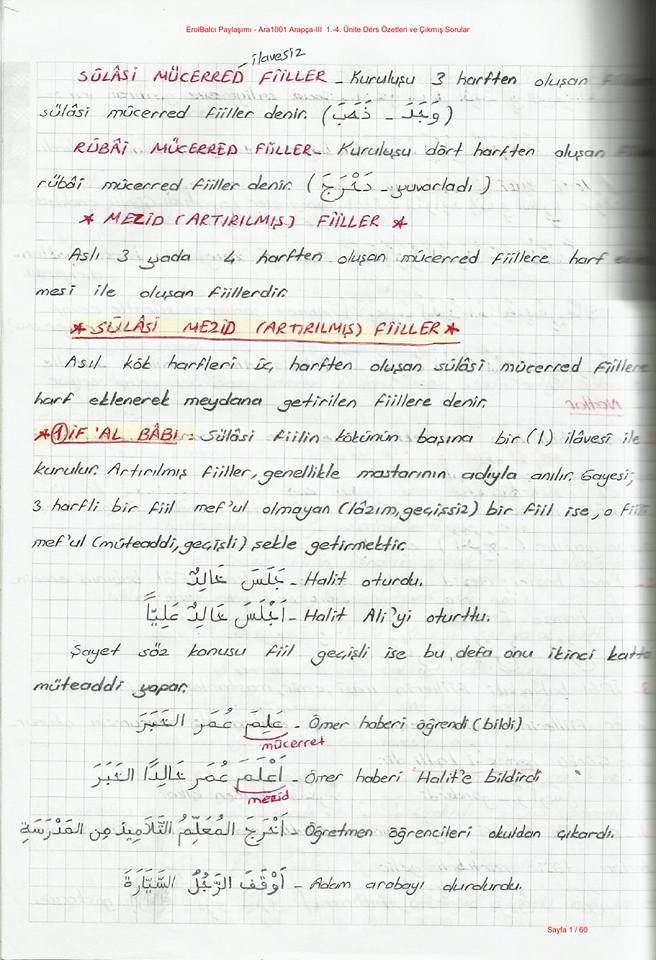 ErolBalcı Paylaşımı - Ara1001 Arapça-III 1.-4. Ünite Ders Özetleri ve Çıkmış Sorular
ilavesiz
SÜLÂSİ MÜCERRED FİİLLER _ Kuruluşu 3 harften oluşan
sülâsi mücerred fiiller denir. (وَجَدَ - ذَهَبَ)
RÜBÂİ MÜCERRED FİİLLER_ Kuruluşu dört harften oluşan
rübâi mücerred fiiller denir. (دَحْرَجَ - yuvarladı)
* MEZİD (ARTIRILMIŞ) FİİLLER *
Aslı 3 yada 4 harften oluşan mücerred fiillere harf
mesi ile oluşan fiillerdir.
* SÜLÂSİ MEZİD (ARTIRILMIŞ) FİİLLER *
Asıl kök harfleri üç harften oluşan sülâsi mücerred fiillere
harf eklenerek meydana getirilen fiillere denir.
* 1) İF'AL BÂBI: Sülâsi fiilin kökünün başına bir (ا) ilâvesi ile
kurulur. Artırılmış fiiller, genellikle mastarının adıyla anılır. Gayesi;
3 harfli bir fiil mef'ul olmayan (lâzım, geçişsiz) bir fiil ise, o
mef'ul (müteaddi, geçişli) şekle getirmektir.
جَلَسَ خَالِدٌ - Halit oturdu.
اَجْلَسَ خَالِدٌ عَلِيّاً - Halit Ali'yi oturttu.
Şayet söz konusu fiil geçişli ise bu defa onu ikinci katta
müteaddi yapar.
عَلِمَ عُمَر الخَبَرَ - Ömer haberi öğrendi (bildi)
mücerret
اَعْلَمَ عُمَر خَالِدًا الخَبَرَ - Ömer haberi Halit'e bildirdi
mezid
اَخْرَجَ المُعَلِّمُ التَّلَامِيذَ مِنَ المَدْرَسَةِ - Öğretmen öğrencileri okuldan çıkardı.
اَوْقَفَ الرَّجُلُ السَّيَّارَةَ - Adam arabayı durdurdu.
Sayfa 1 / 60